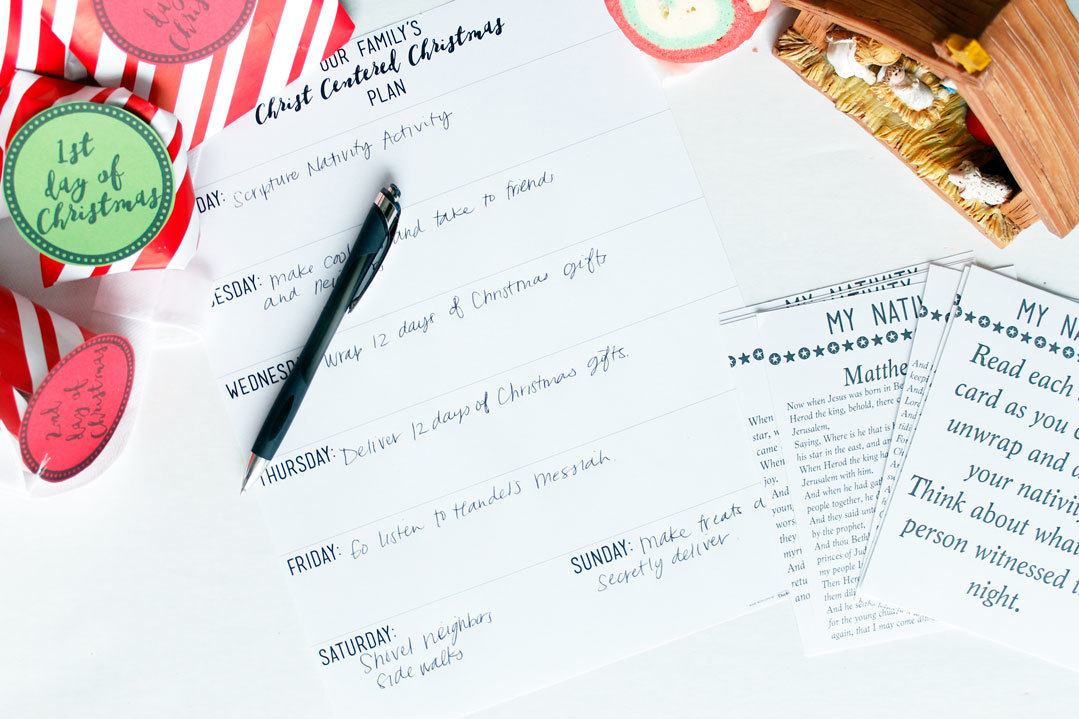 day of
Christmas
1st
day of
Christmas
2nd
day of
Christmas
OUR FAMILY'S
Christ Centered Christmas
PLAN
DAY: Scripture Nativity Activity
ESDAY: make and take to friends
and
WEDNESD Wrap 12 days of Christmas gifts
THURSDAY: Deliver 12 days of Christmas gifts.
FRIDAY: Go listen to Handels Messiah.
SATURDAY:
Shovel neighbors
side walks
SUNDAY: make treats
secretly deliver.
MY NATIVITY
MY NATI
Matthe
Now when Jesus was born in Be
Herod the king, behold, there
Jerusalem,
Saying, Where is he that is
his star in the east, and a
When Herod the king ha
Jerusalem with him.
And when he had gat
people together, he d
And they said unt
by the prophet,
And thou Beth
princes of Jud
my people I
Then Hero
them dili
And he se
for the young ch
again, that I may come a
When
star, w
came
When
joy.
And
youn
wors
they
myrr
And
retu
ano
MY N
Read each
card as you
unwrap and
your nativity
Think about what
person witnessed
night.